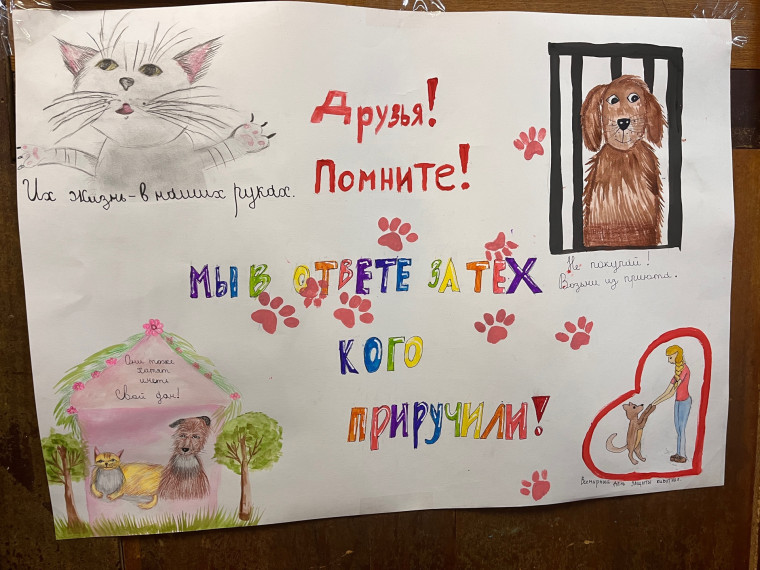 Друзья!
Помните!
Их жизнь - в наших руках.
Не покупай!
Возьми из приюта.
МЫ В ОТВЕТЕ ЗА ТЕХ
КОГО
ПРИРУЧИЛИ!
Они тоже
хотят
иметь
Свой дом!
Всемирный день защиты животных.